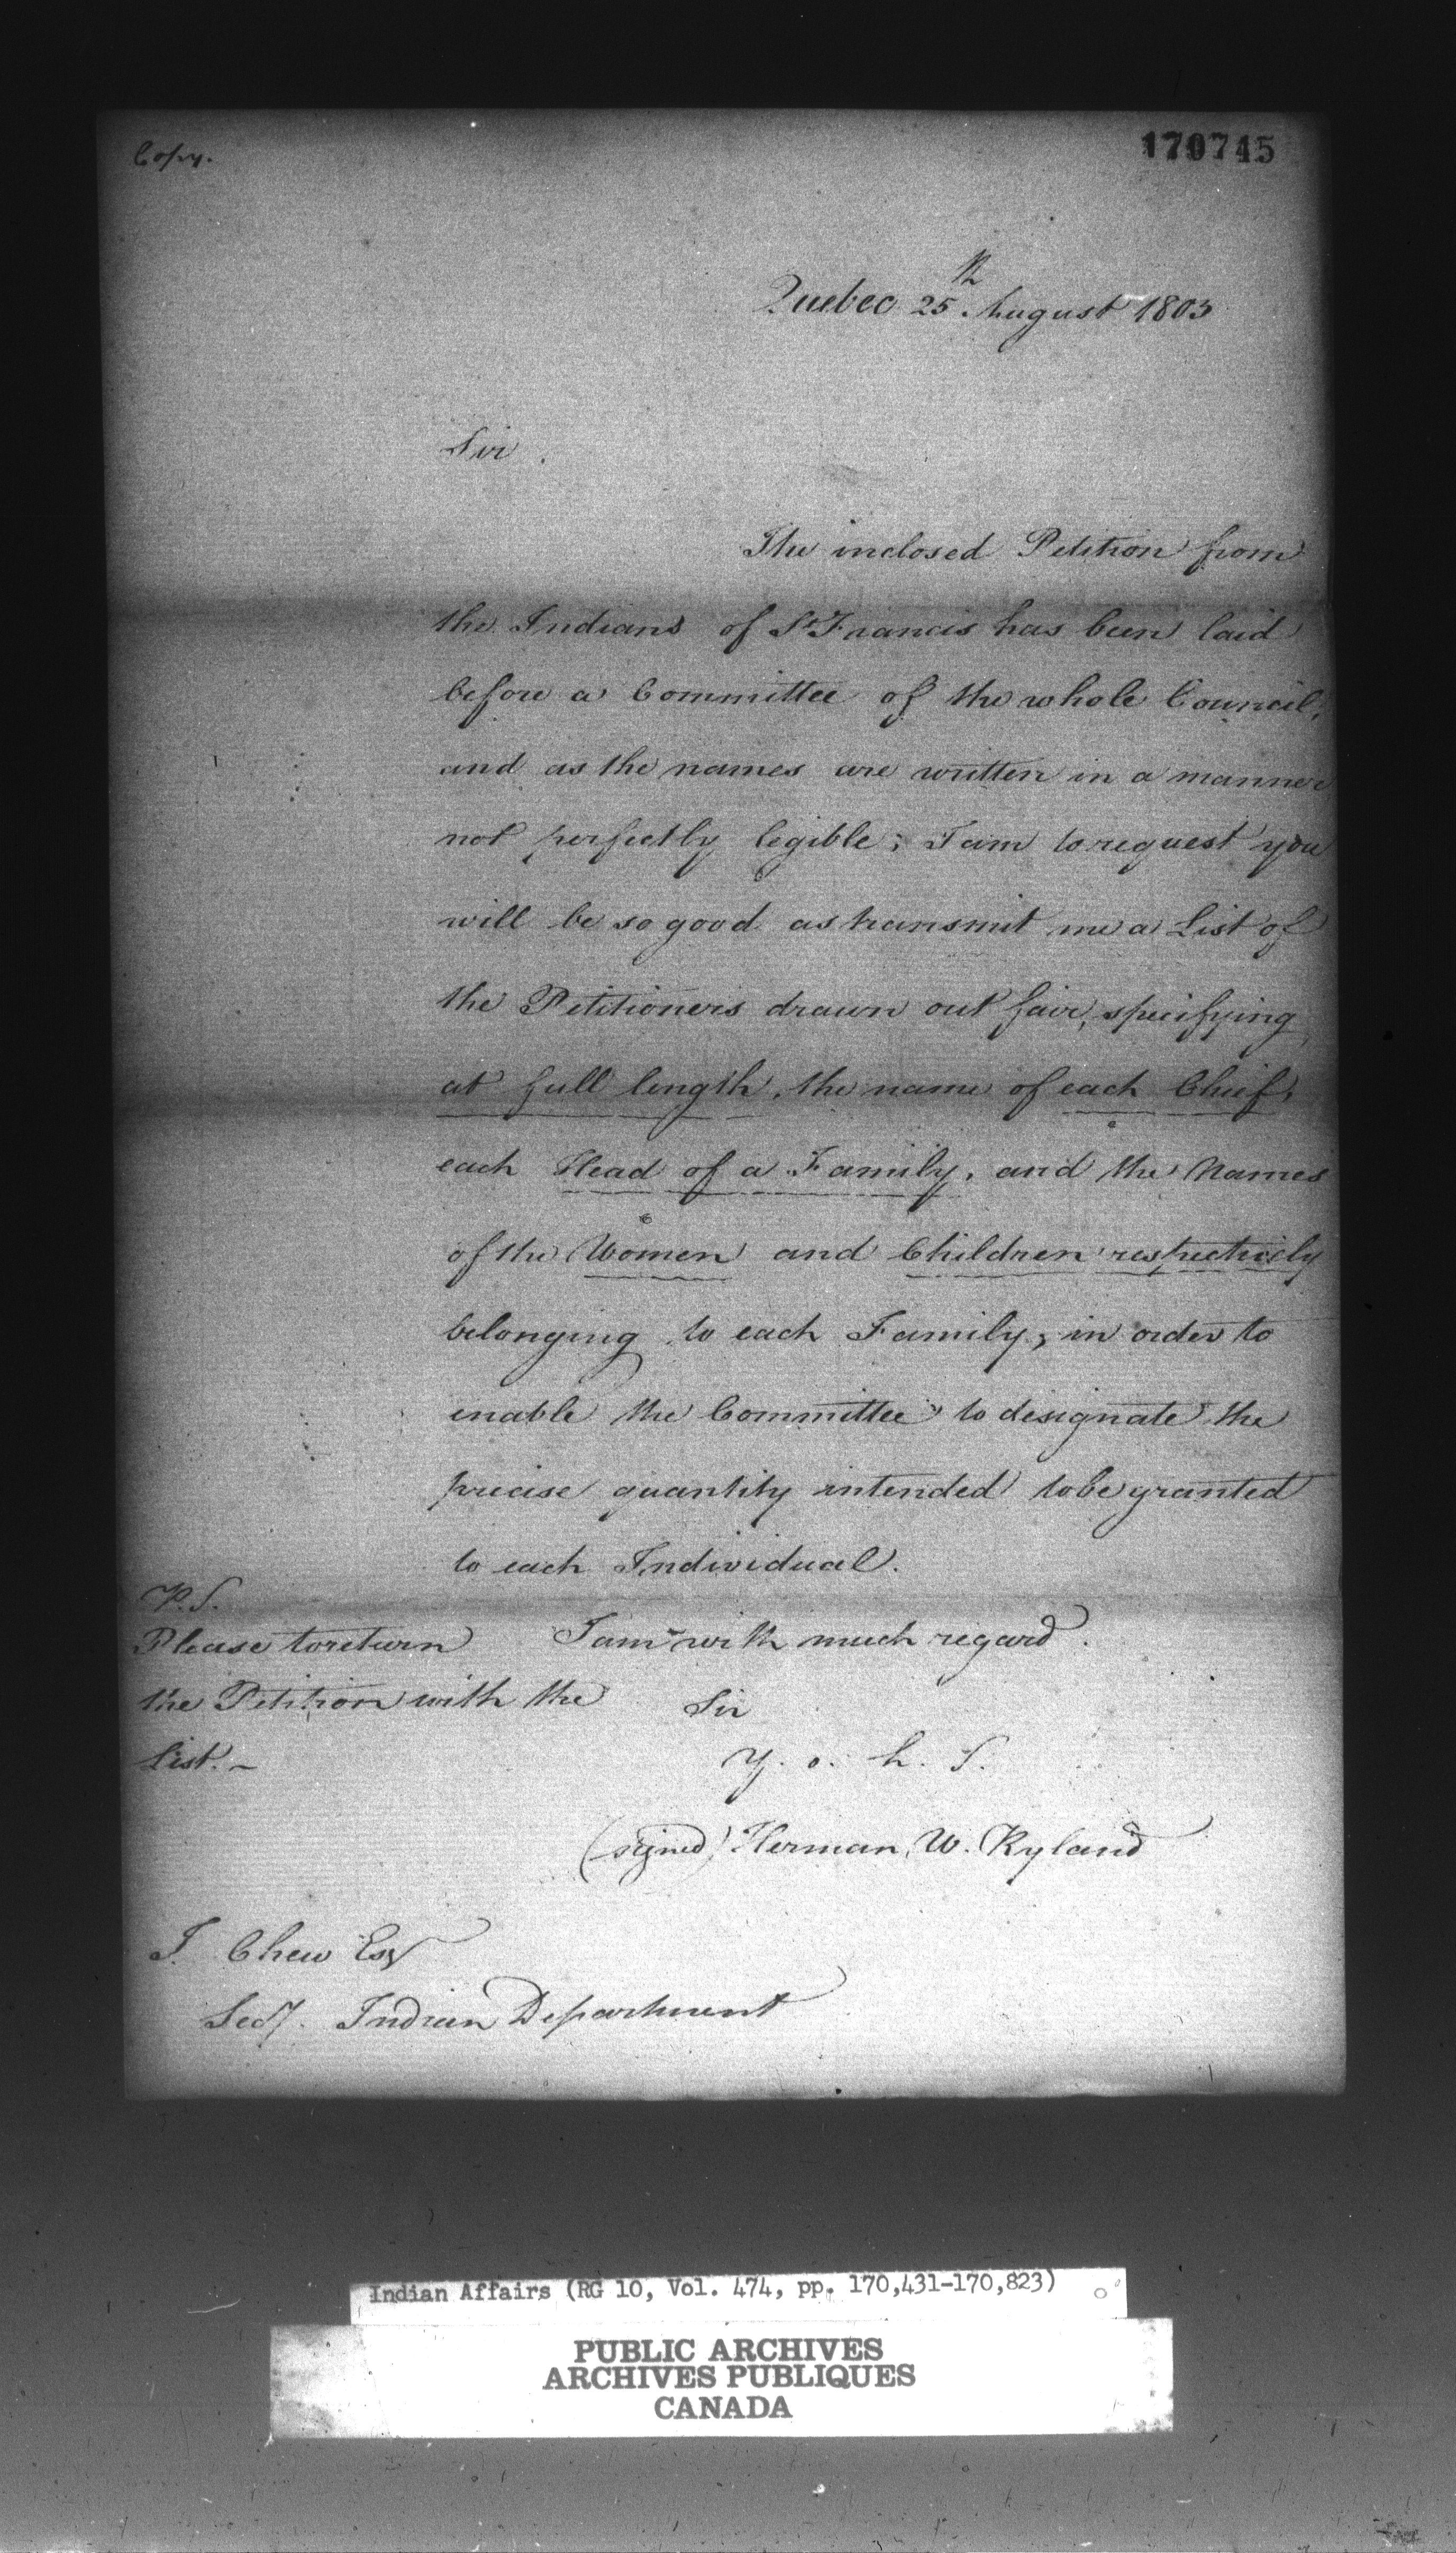 Copy.
170745
Quebec 25th. August 1803
Sir.
The inclosed Petition from
the Indians of St Francis has been laid
before a Committee of the whole Council,
and as the names are written in a manner
not perfectly legible; I am to request you
will be so good as transmit me a List of
the Petitioners drawn out fair, specifying
at full length, the name of each Chief,
each Head of a Family, and the Names
of the Women and Children respectively
belonging to each Family, in order to
enable the Committee to designate the
precise quantity intended to be granted
to each Individual.
I am with much regard.
Sir
Y. o. h. S.
(signed) Herman W. Ryland
P.S.
Please to return
the Petition with the
List. -
J. Chew Esq
Secy. Indian Department
Indian Affairs (RG 10, Vol. 474, pp. 170,431-170,823)
PUBLIC ARCHIVES
ARCHIVES PUBLIQUES
CANADA